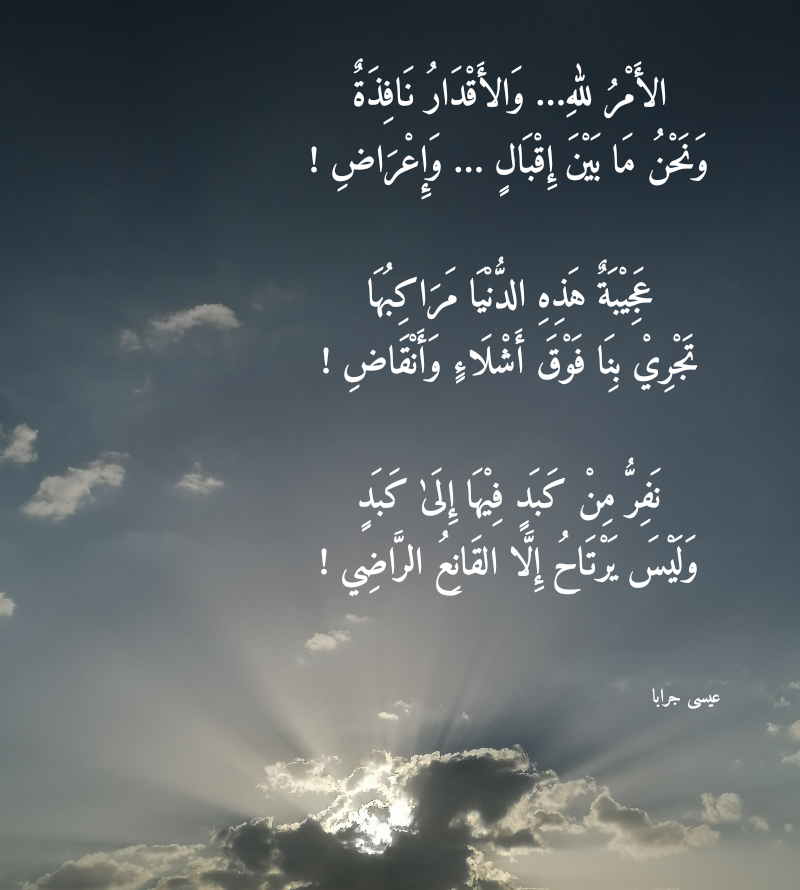 الأَمْرُ للهِ... وَالأَقْدَارُ نَافِذَةٌ
وَنَحْنُ مَا بَيْنَ إِقْبَالٍ ... وَإِعْرَاضِ !
عَجِيْبَةٌ هَذِهِ الدُّنْيَا مَرَاكِبُهَا
تَجْرِيْ بِنَا فَوْقَ أَشْلَاءٍ وَأَنْقَاضِ !
نَفِرُّ مِنْ كَبَدٍ فِيْهَا إِلَىٰ كَبَدٍ
وَلَيْسَ يَرْتَاحُ إِلَّا القَانِعُ الرَّاضِي !
عيسى جرابا